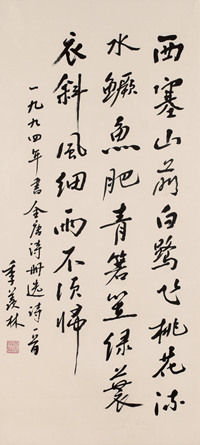 西塞山前白鹭飞桃花流
水鳜鱼肥青箬笠绿蓑
衣斜风细雨不须归
一九九四年书全唐诗册选诗一首
季羡林